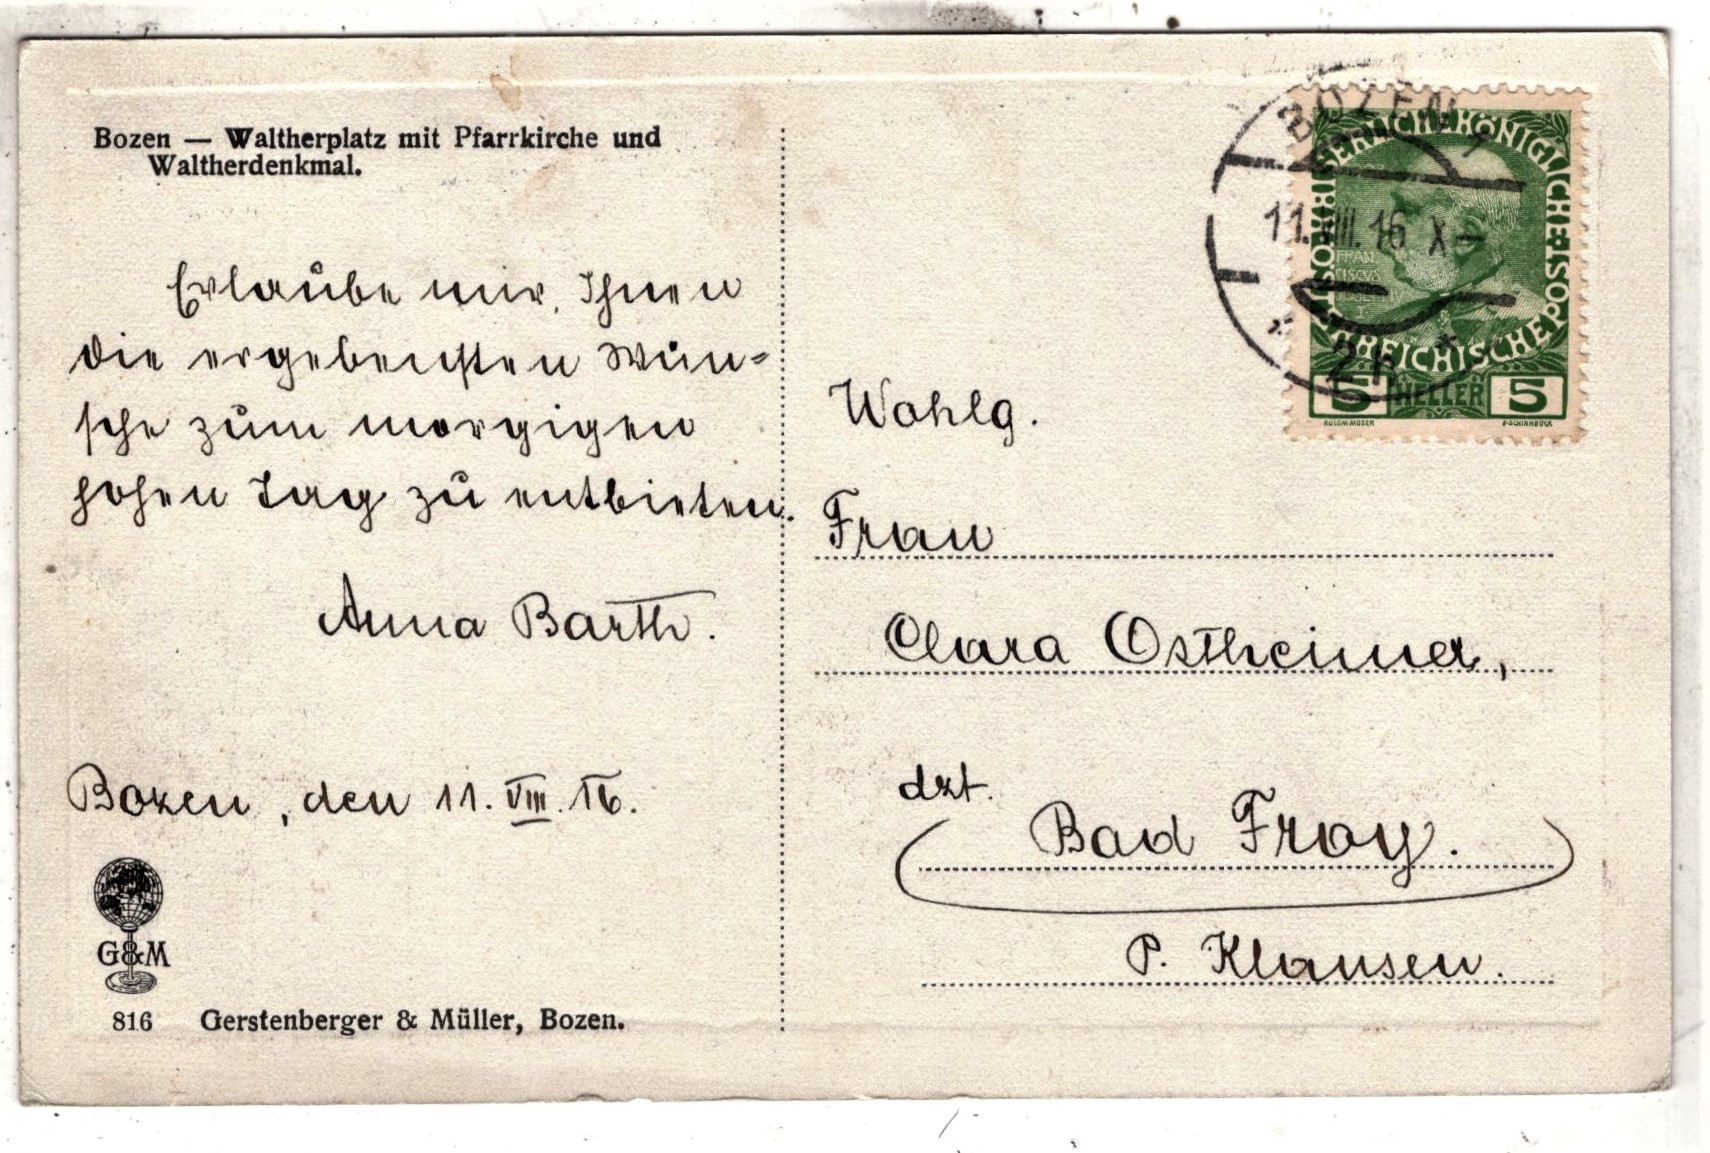 Bozen — Waltherplatz mit Pfarrkirche und
Waltherdenkmal.
Erlaube mir, Ihnen
die ergebensten Wün-
sche zum morgigen
hohen Tag zu entbieten.
Anna Barth.
Bozen, den 11. VIII. 16.
G&M
816 Gerstenberger & Müller, Bozen.
BOZEN 1
11.VIII.16 X-
2h
KAISERLICHE KÖNIGLICHE
ÖSTERREICHISCHE POST
FRAN
CISCVS
I
5 HELLER 5
KOLOM·MOSER
F·SCHIRNBÖCK
Wohlg.
Frau
Clara Ostheimer,
dzt.
Bad Froy.
P. Klausen.